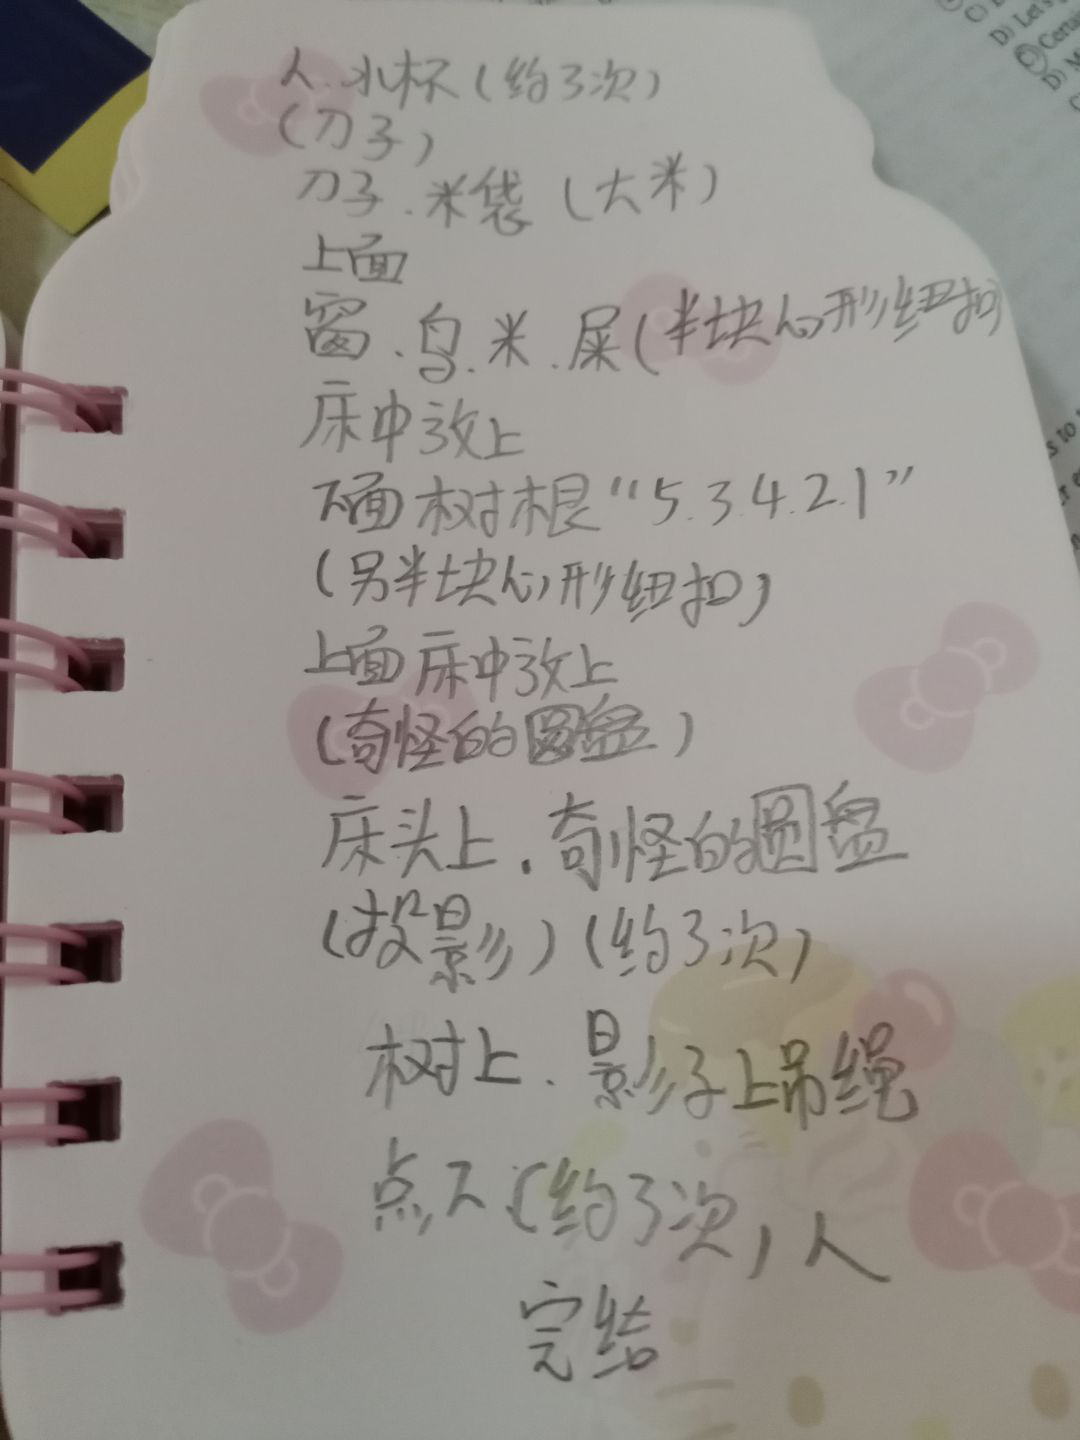 人.水杯(约3次)
(刀子)
刀子.米袋(大米)
上面
窗.鸟.米.屎(半块心形纽扣)
床中放上
下面树根“5.3.4.2.1”
(另半块心形纽扣)
上面床中放上
(奇怪的圆盘)
床头上.奇怪的圆盘
(投影)(约3次)
树上.影子上吊绳
点下(约3次)人
完结
D) Let's